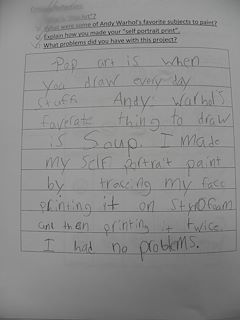 What is "Pop Art"?
What were some of Andy Warhol's favorite subjects to paint?
Explain how you made your "self portrait print".
What problems did you have with this project?
Pop art is when
you draw every day
stuff. Andy Warhol's
faverate thing to draw
is Soup. I made
my self portrait paint
by tracing my face
printing it on StyrOfoam
and then printing it twice.
I had no problems.